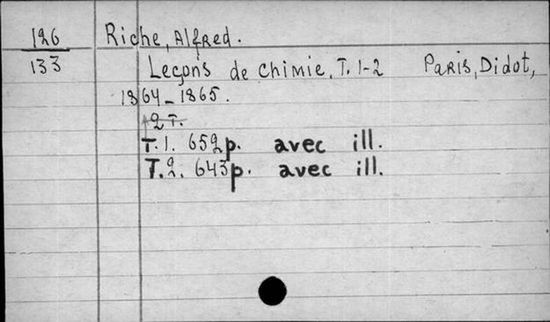 126 Riche, Alfred.
133 Leçons de chimie, T. 1-2 Paris, Didot,
1864-1865.
2 T.
T. 1. 652p. avec ill.
T. 2. 643p. avec ill.